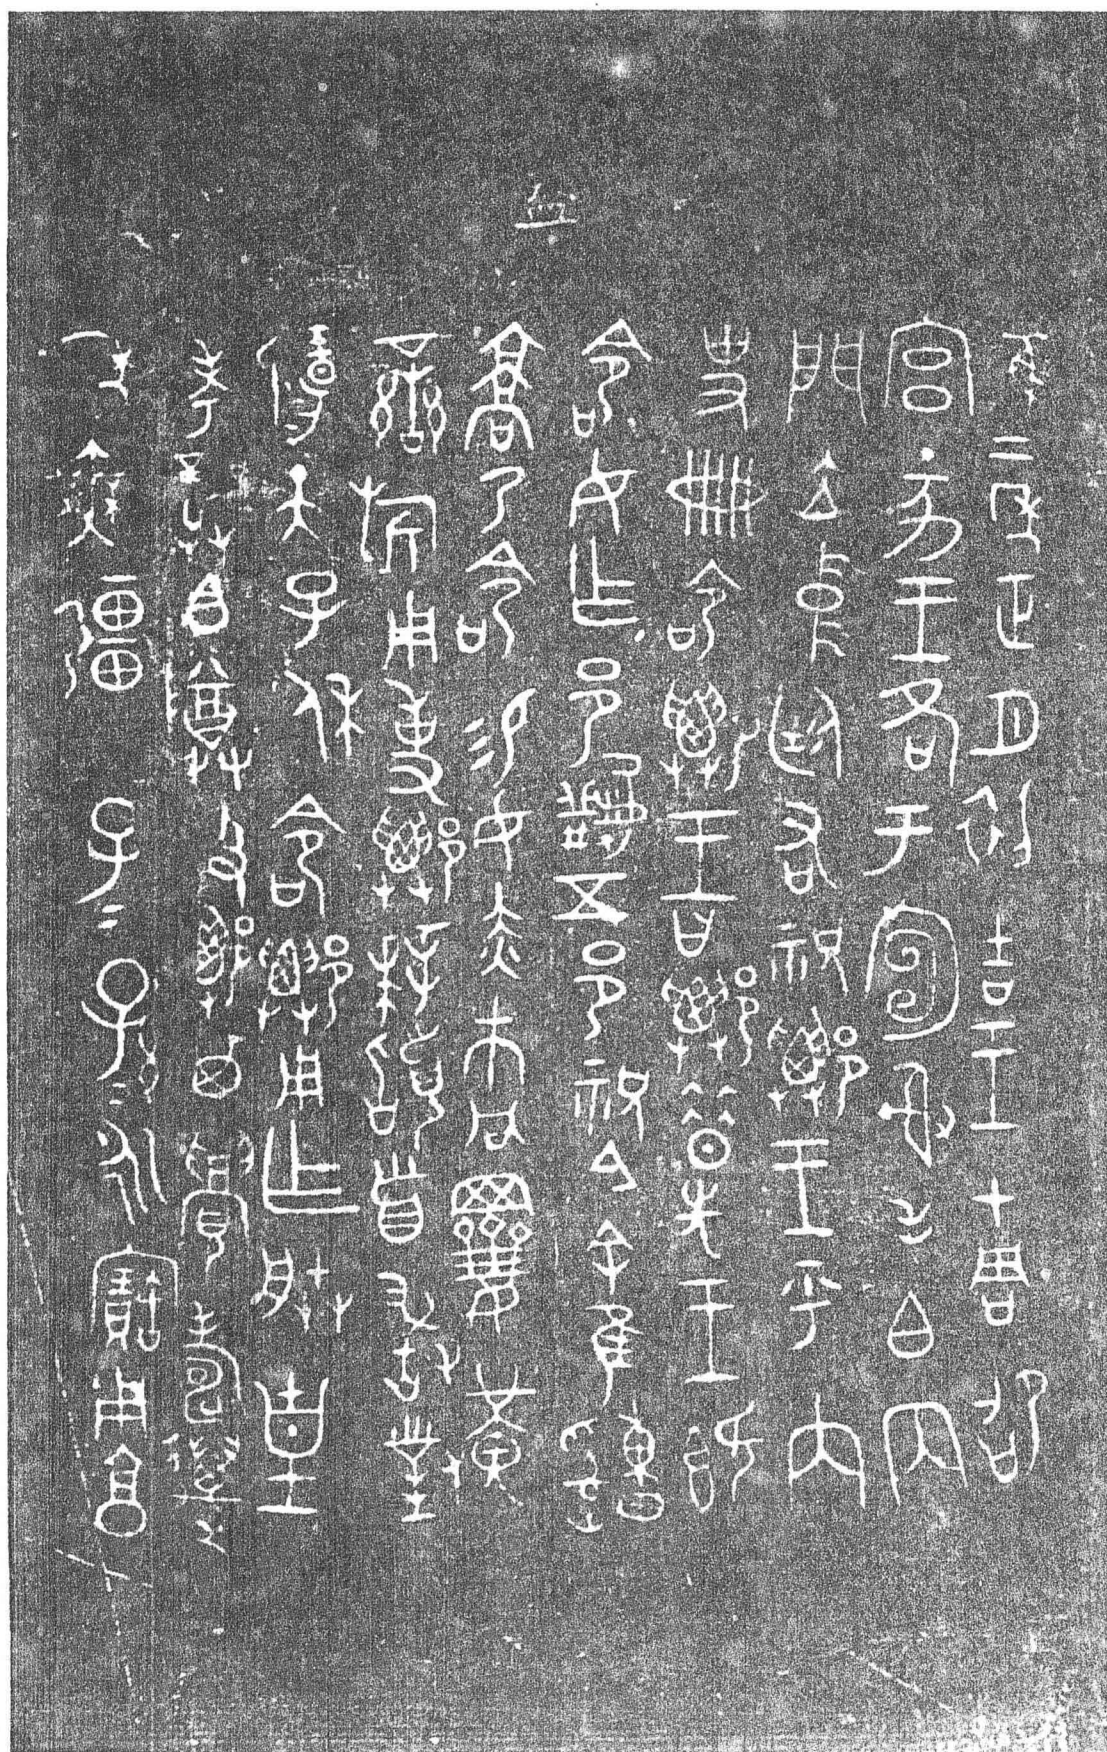 隹二年正月初吉王才周卲
宮丁亥王各于宣射毛白內
門立中廷右祝鄩王乎內
史冊命鄩王曰鄩昔先王既
命女乍邑五邑祝今余隹𤕌
𦅫乃命易女赤巿冋睘黃
䜌旂用事鄩拜𩒨首敢對
揚天子休命鄩用乍朕皇
考龏白尊𣪘鄩其眉壽萬
年無疆子＝孫＝永寶用享